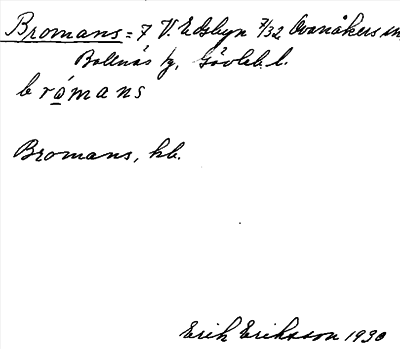 Bromans = 7 V. Edsbyn 7/32 Ovanåkers sn,
Bollnäs tg, Gävleb. l.
brómans
Bromans, hb.
Erik Eriksson 1930